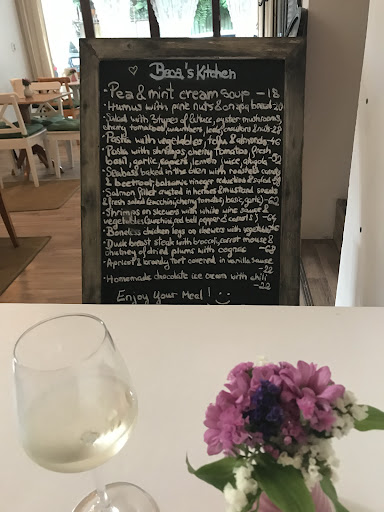 Basa's Kitchen
• Pea & mint cream soup – 18
• Humus with pine nuts & crispy bread 20
• Salad with 3 types of lettuce, oyster mushrooms,
cherry tomatoes, cucumbers, leek, croutons & nuts 28
• Pasta with vegetables, tofu & almonds – 46
• Pasta with shrimps, cherry tomatoes, fresh
basil, garlic, capers, lemon juice,
• Seabass baked in the oven with roasted carrots
& beetroot, balsamic vinegar reduction & salad
• Salmon fillet crusted in herbs & mustard seeds
& fresh salad (zucchini, cherry tomatoes, basil, garlic) – 62
• Shrimps on skewers with white wine sauce &
vegetables (zucchini, red bell pepper & carrot) – 64
• Boneless chicken legs on skewers with vegetables
• Duck breast steak with broccoli, carrot mousse &
chutney of dried plums with cognac – 68
• Apricot & brandy tart covered in vanilla sauce
– 22
• Homemade chocolate ice cream with chili
– 22
Enjoy Your Meal! :)